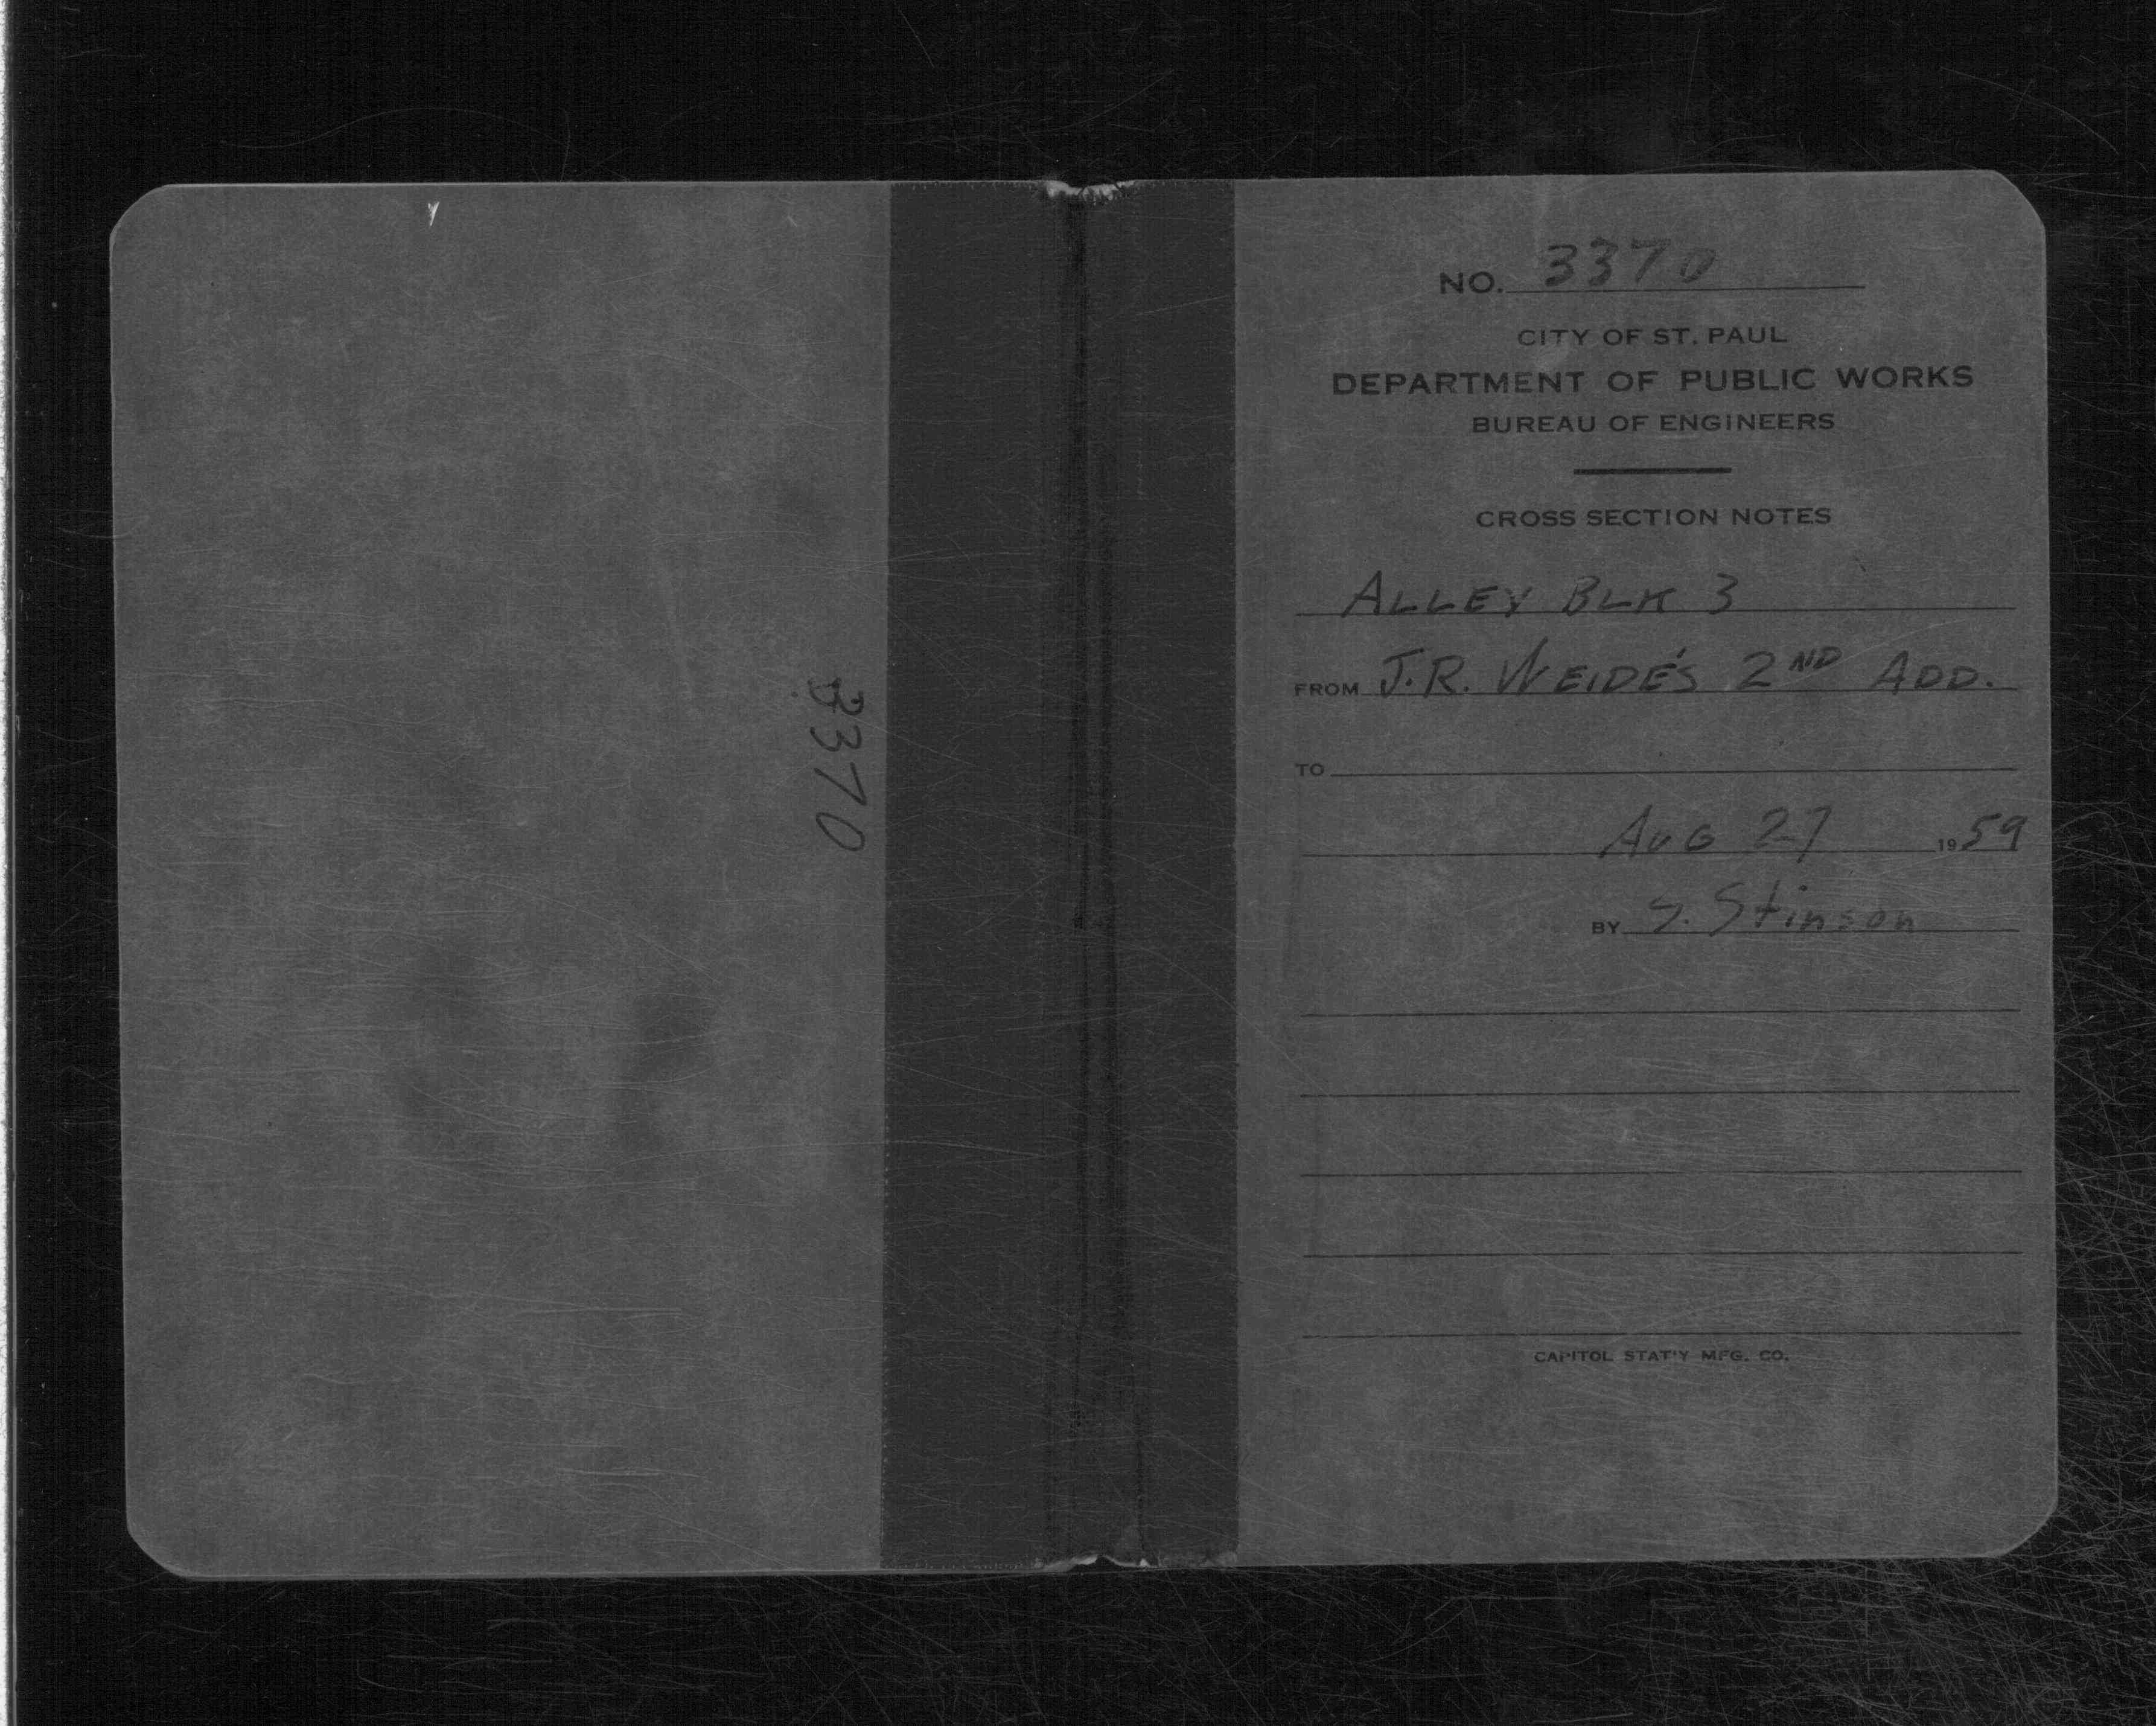 3370
NO. 3370
CITY OF ST. PAUL
DEPARTMENT OF PUBLIC WORKS
BUREAU OF ENGINEERS
CROSS SECTION NOTES
ALLEY BLK 3
FROM J.R. WEIDE'S 2ND ADD.
TO
AUG 27 1959
BY S. Stinson
CAPITOL STAT'Y MFG. CO.